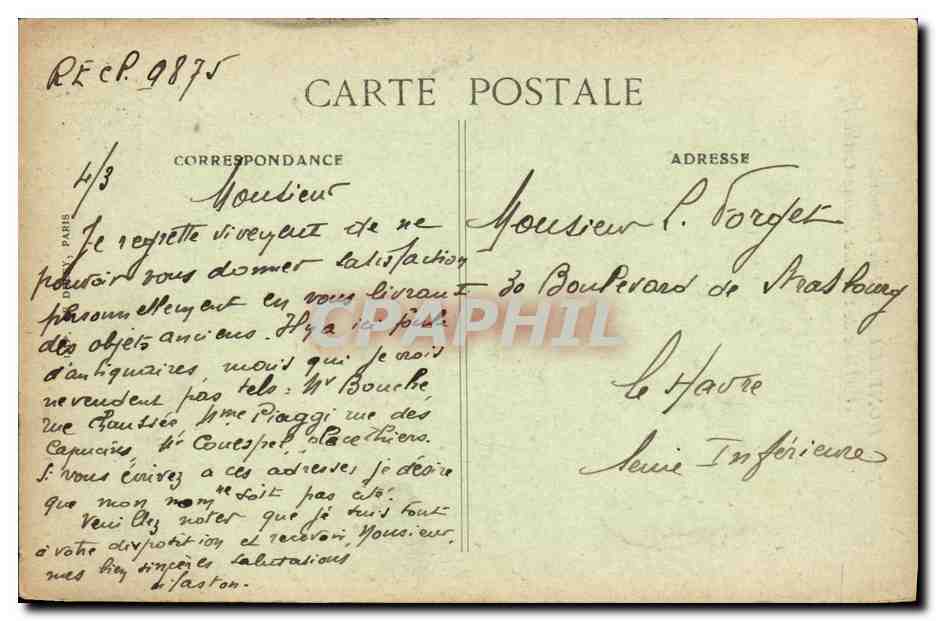 RECP. 9875
CARTE POSTALE
CORRESPONDANCE
ADRESSE
4/3
Monsieur
Je regrette vivement de ne
pouvoir vous donner satisfaction
personnellement en vous livrant
des objets anciens. Il y a ici foule
d'antiquaires, mais qui je crois
ne vendent pas tels: Mr Bouché
rue Chaussée, Mme Piaggi rue des
Capucins, Mr Couespel, place Thiers.
Si vous écrivez a ces adresses je désire
que mon nom ne soit pas cité.
Veuillez noter que je suis tout
à votre disposition et recevoir, Monsieur,
mes bien sincères salutations
PARIS
Monsieur P. Forget
30 Boulevard de Strasbourg
le Havre
Seine Inférieure
CPAPHIL